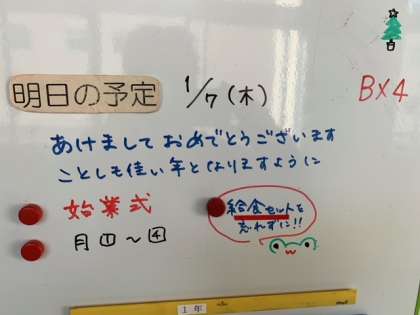 明日の予定
1/7(木)
B×4
あけましておめでとうございます
ことしも佳い年となりますように
始業式
月①～④
給食セットを
忘れずに!!
1年